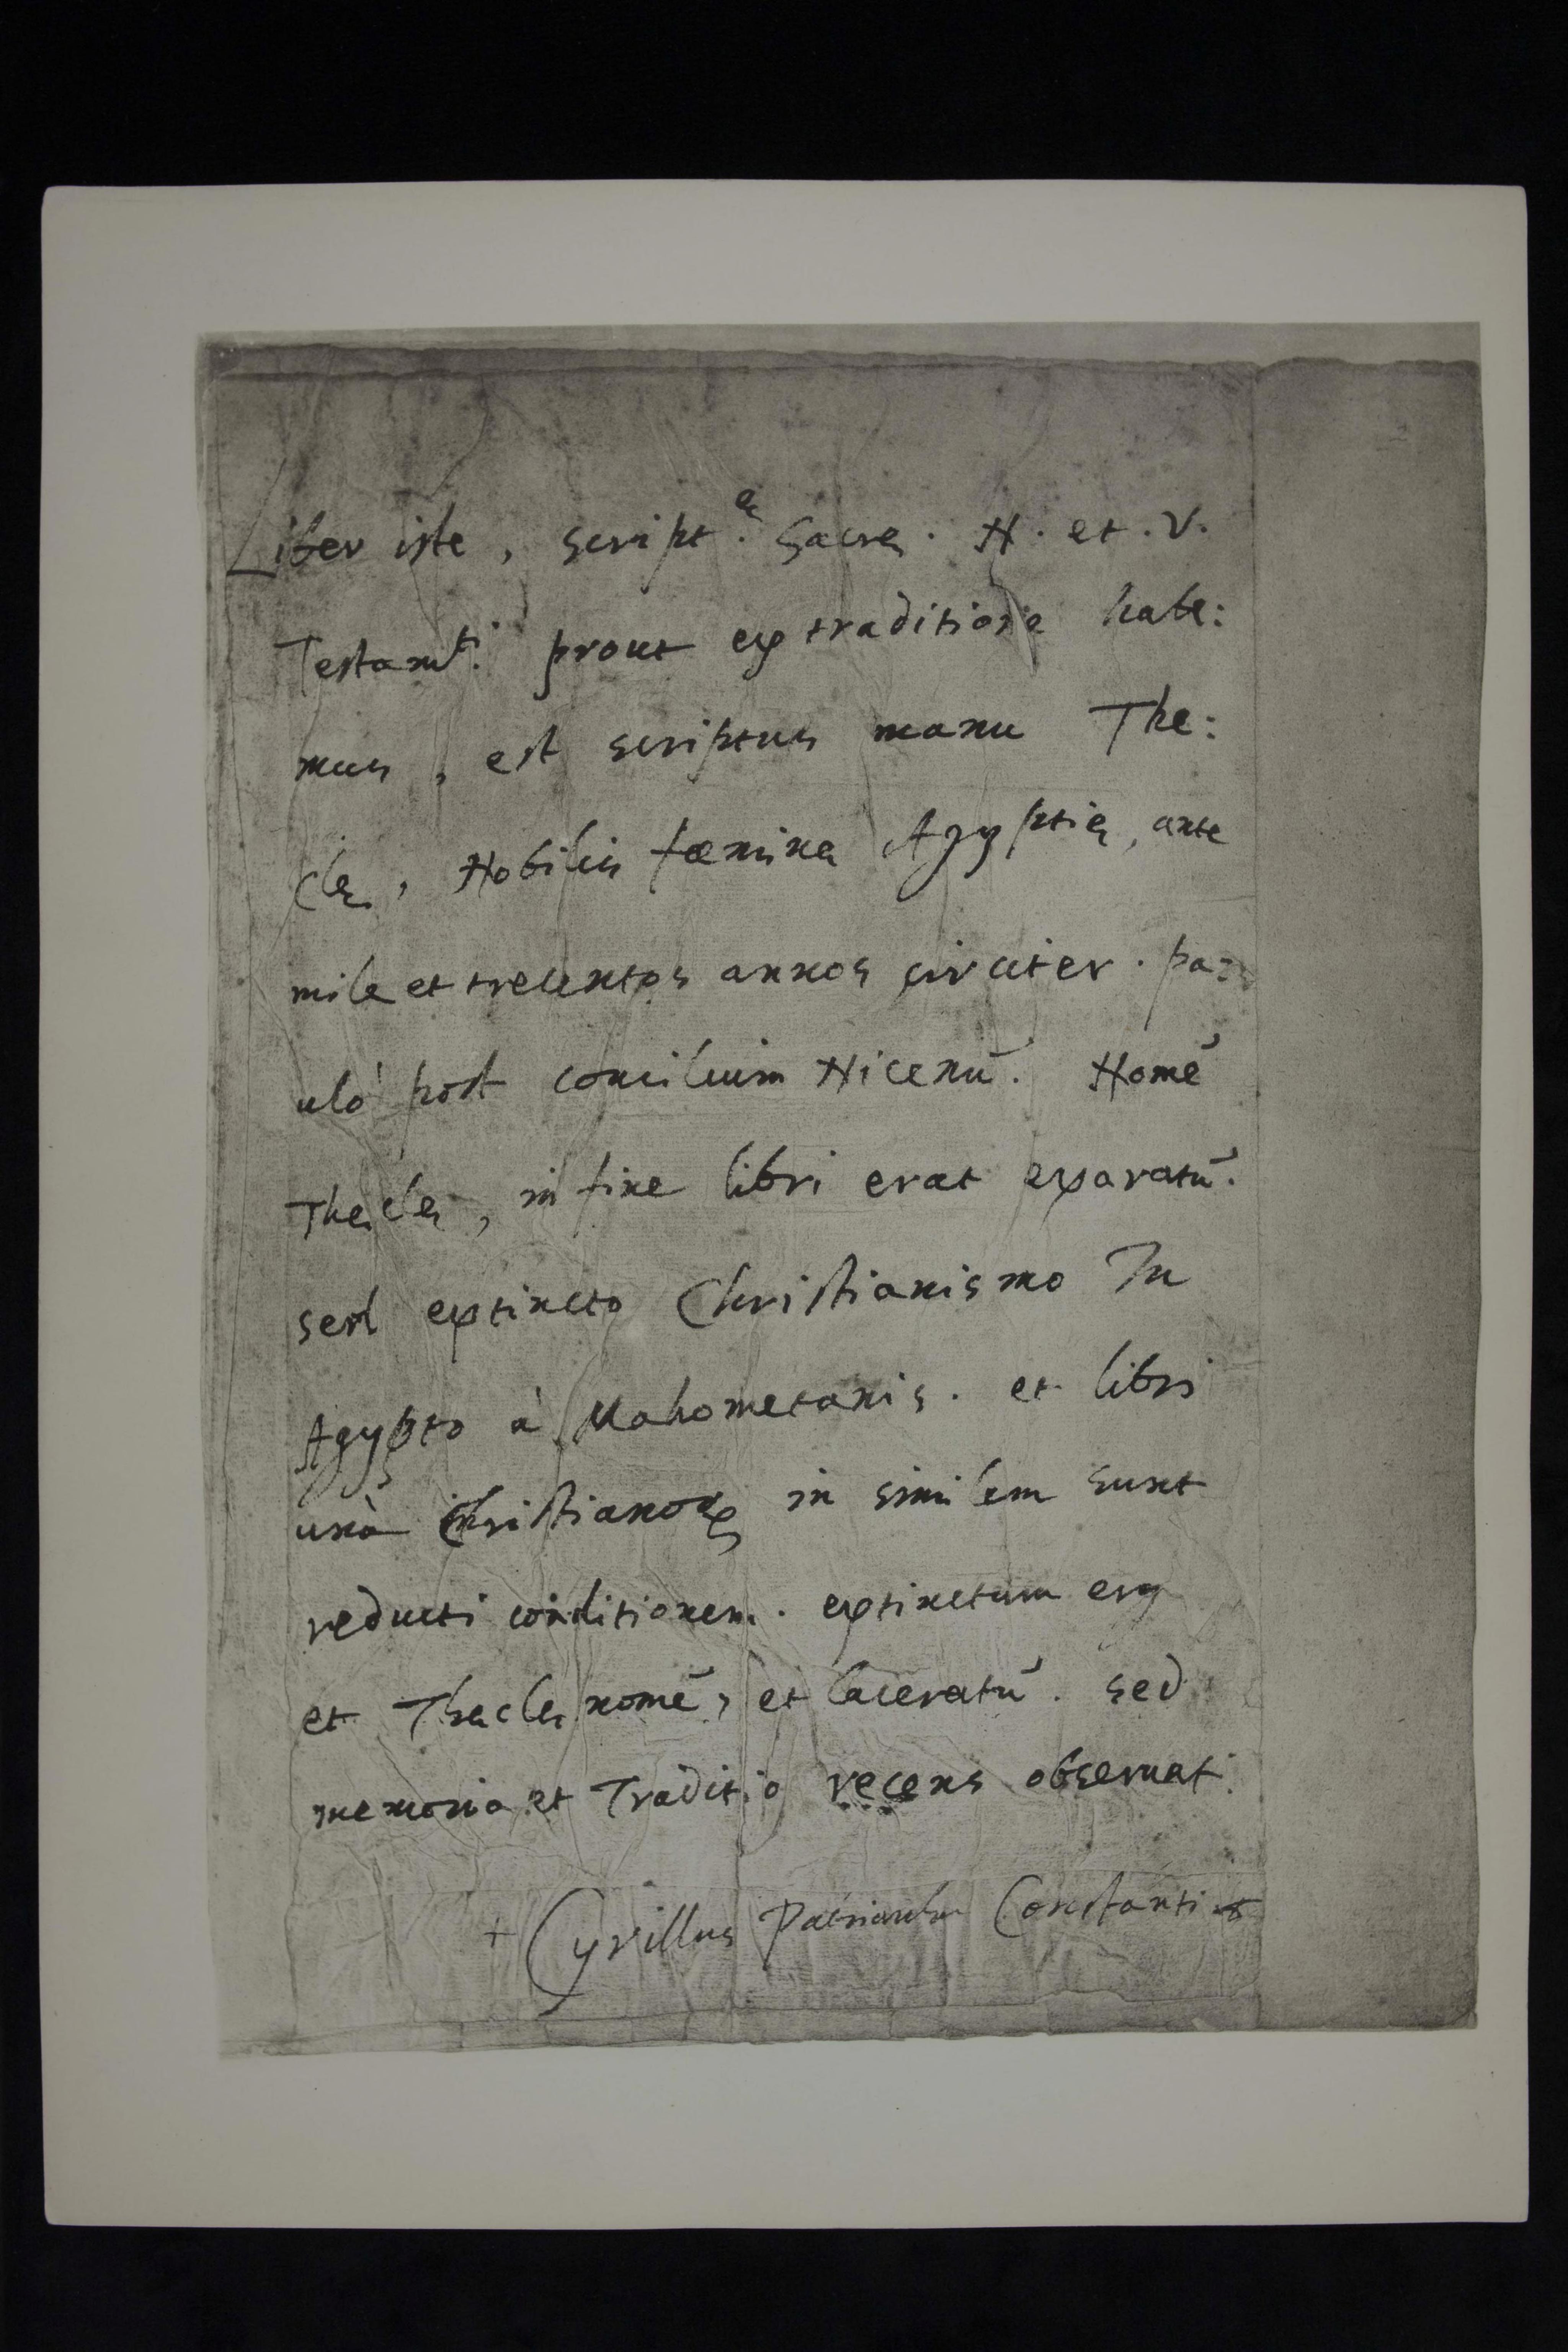 Liber iste, script.æ Sacræ. N. et. V.
Testamti. prout ex traditione habe:
mus, est scriptus manu The:
clæ, Nobilis fæminæ Ægyptiæ, ante
mile et trecentos annos circiter. pa:
uló post concilium Nicenũ. Nomẽ
Theclæ, in fine libri erat exaratũ.
sed extincto Christianismo In
Ægypto à Mahometanis. et libri
unà Christianorꝝ in similem sunt
reducti conditionem. extinctum erg
et Theclæ nomẽ, et laceratũ. sed
memoria et Traditio recens obseruat.
+ Cyrillus Patriarcha Constanti